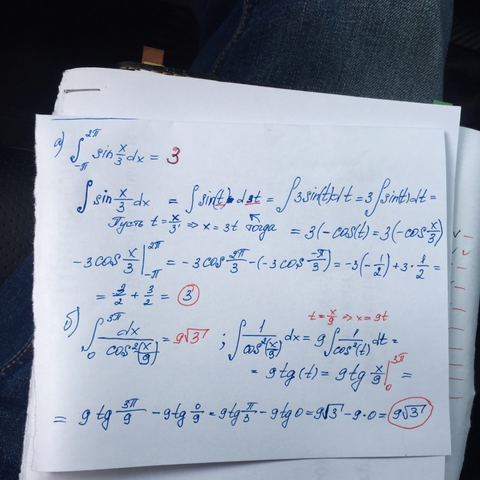 а) ∫_{-π}^{2π} sin x/3 dx = 3
∫ sin x/3 dx = ∫ sin(t) d3t = ∫ 3sin(t)dt = 3∫ sin(t)dt =
Пусть t = x/3, ⇒ x = 3t тогда = 3(-cos(t)) = 3(-cos x/3)
-3cos x/3 |_{-π}^{2π} = -3cos 2π/3 - (-3cos -π/3) = -3(-1/2) + 3·1/2 =
= 3/2 + 3/2 = 3
t = x/9 ⇒ x = 9t
б) ∫_0^{3π} dx/cos²(x/9) = 9√3 ; ∫ 1/cos²(x/9) dx = 9∫ 1/cos²(t) dt =
= 9tg(t) = 9tg x/9 |_0^{3π} =
= 9tg 3π/9 - 9tg 0/9 = 9tg π/3 - 9tg 0 = 9√3 - 9·0 = 9√3